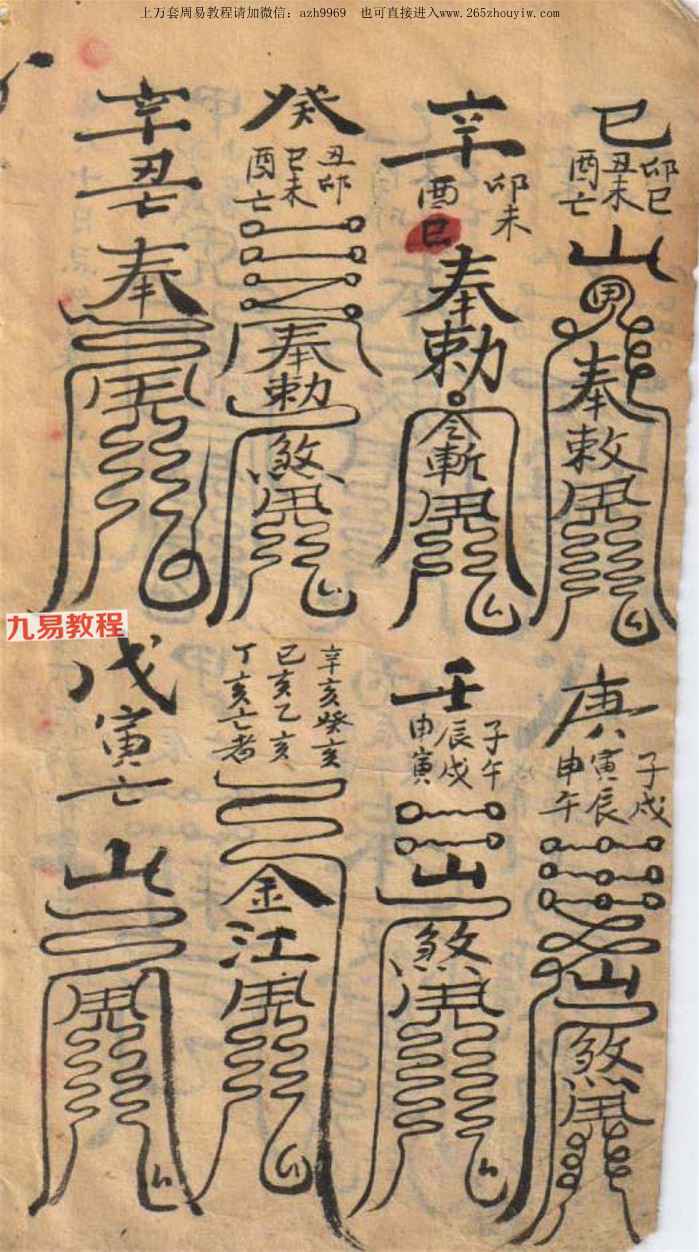 上万套周易教程请加微信：azh9969 也可直接进入www.265zhouyiw.com
己
卯巳
丑未
酉亡
山
男
奉
敕
辛
卯未
酉巳
奉
勅
令斬
癸
丑卯
巳未
酉亡
奉
勅
煞
辛
丑亡
奉
九易教程
庚
子戌
寅辰
申午
山
煞
壬
子午
辰戌
申寅
山
煞
辛亥癸亥
己亥乙亥
丁亥亡者
金
江
戊
寅
亡
山